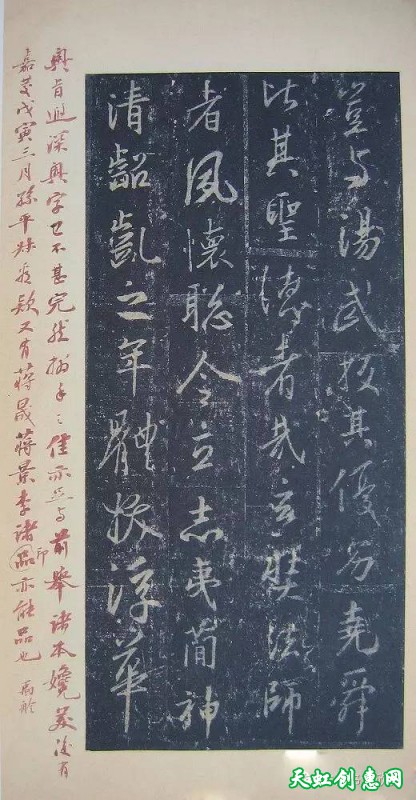 豈与湯武挍其優劣堯舜
比其聖德者哉玄奘法師
者夙懷聡令立志夷簡神
清齠齔之年體拔浮華
奥旨遐深奥字已不甚完然搨手之佳亦足与前舉諸本媲美後有
嘉慶戊寅三月孫平叔款又有蔣晟蔣景李諸印亦能品也
天虹创惠网